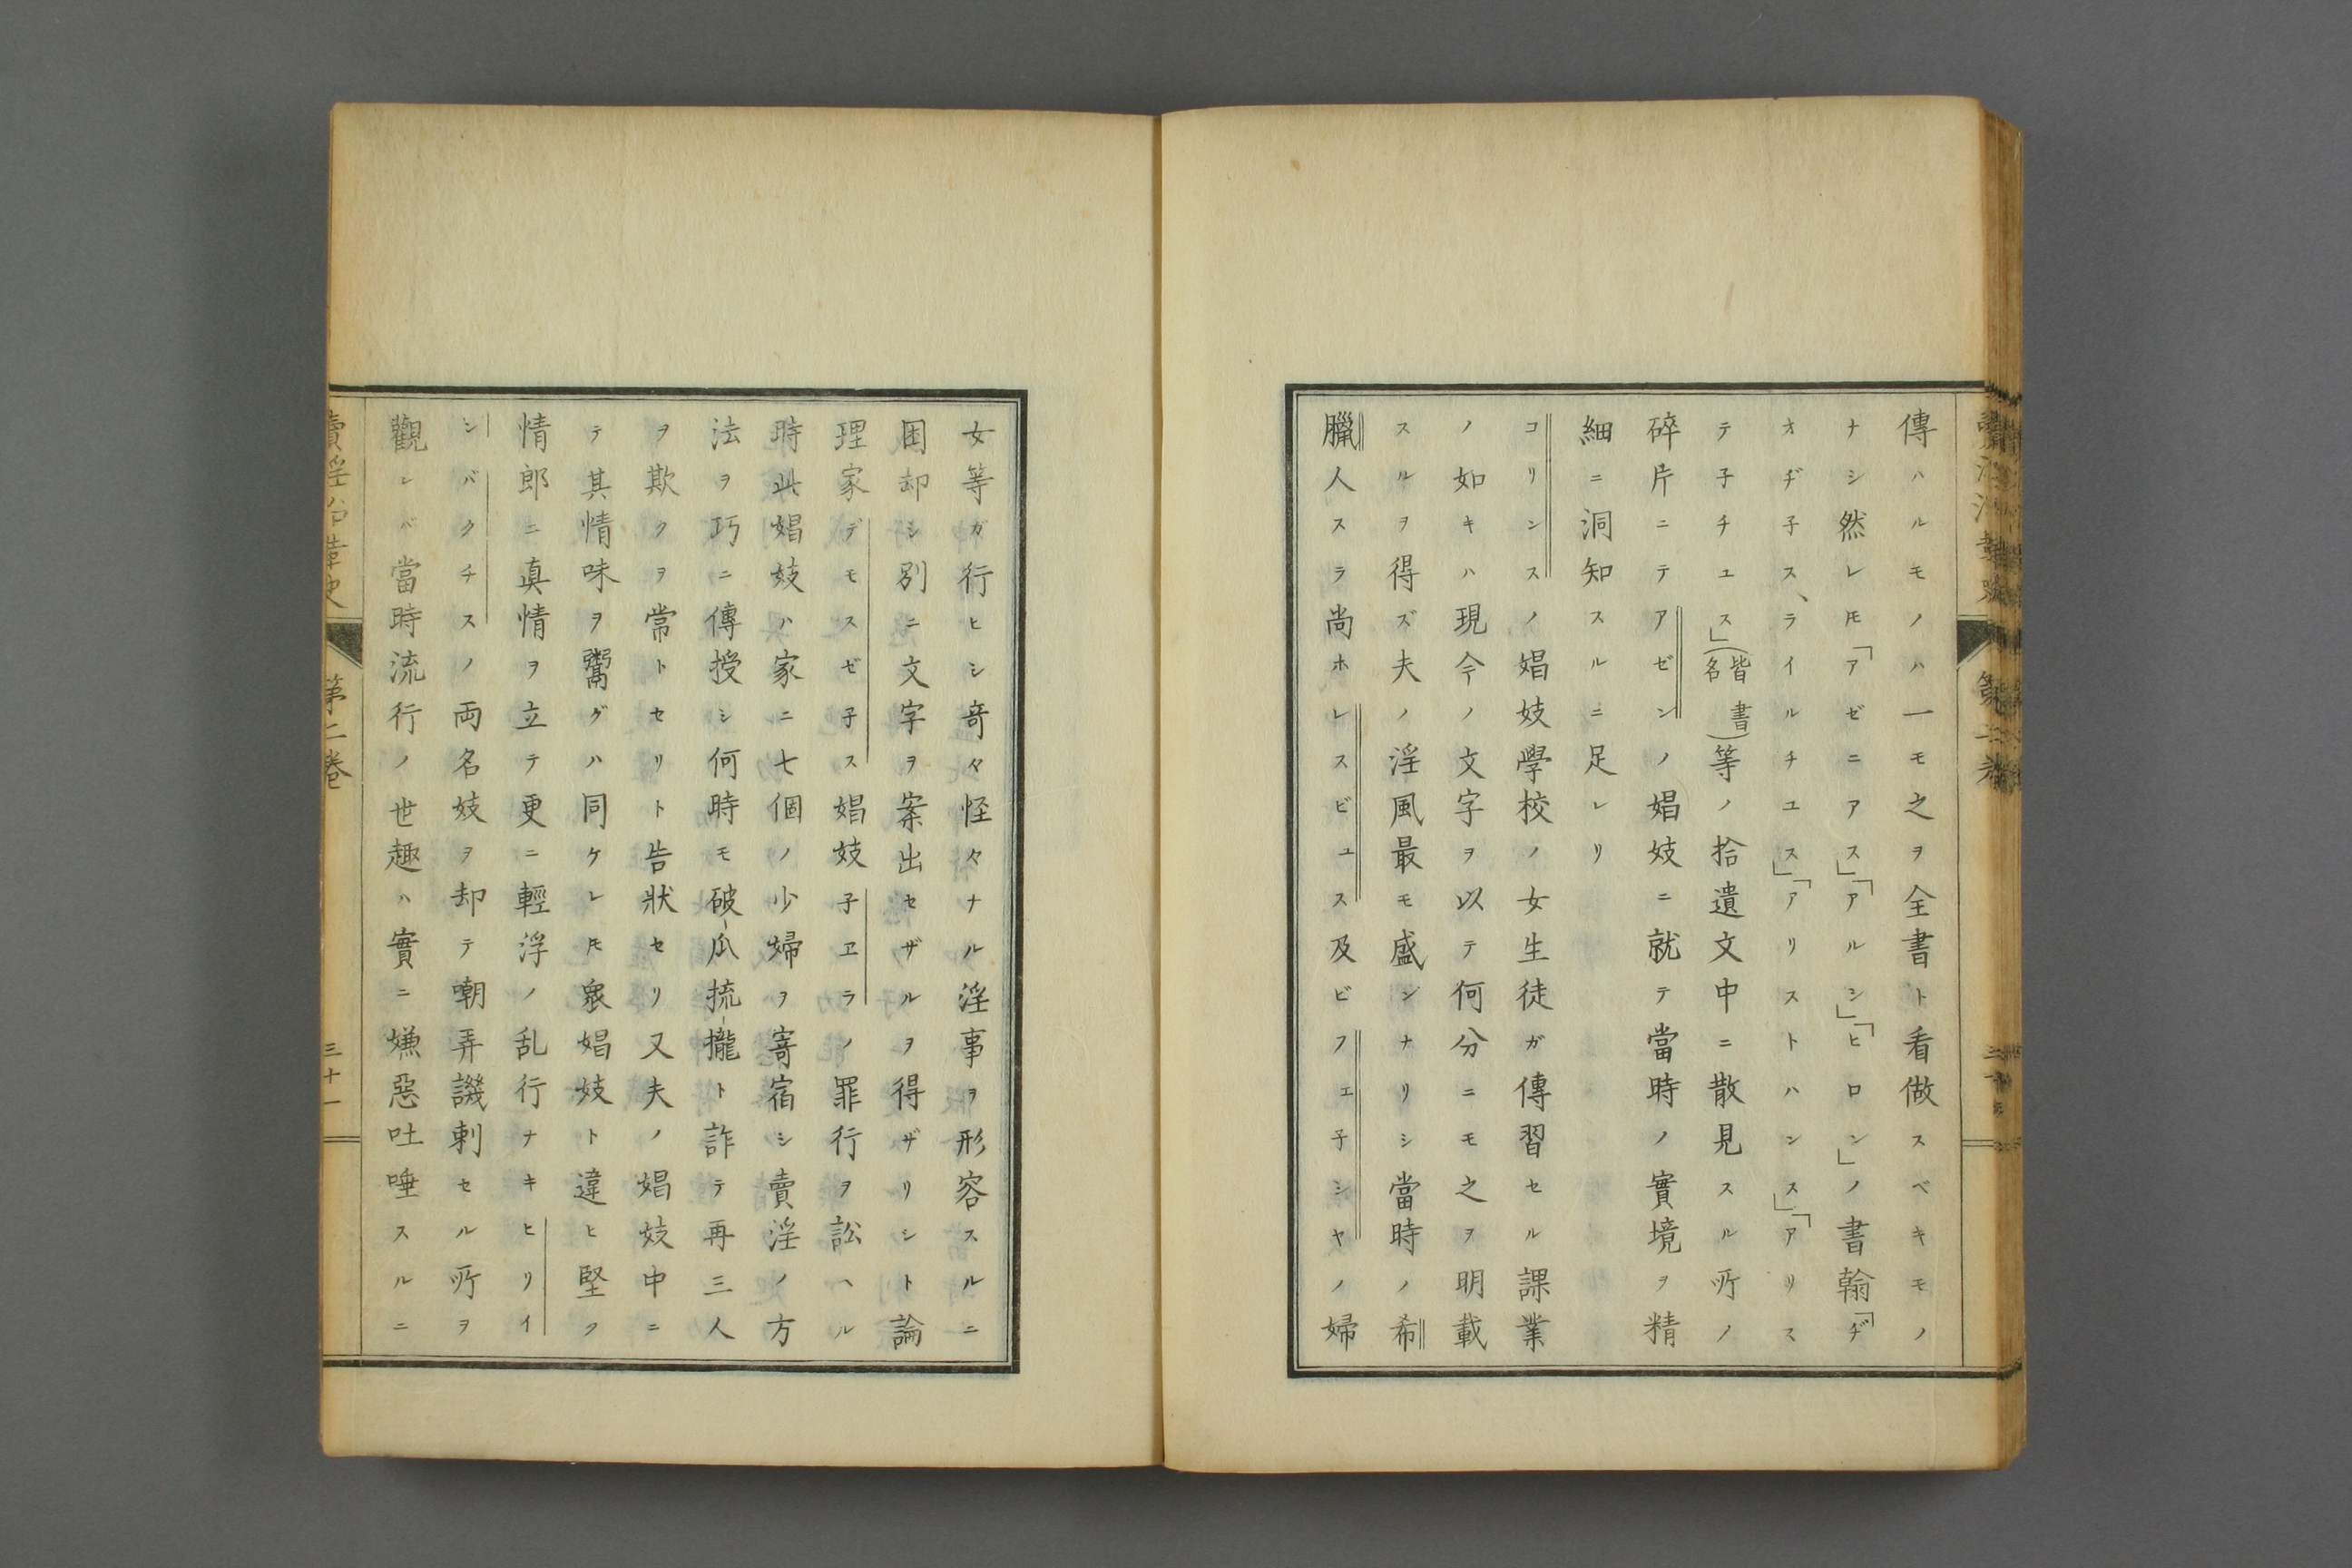 傳ハルモノハ一モ之ヲ全書ト看做スベキモノ
ナシ然レ𪜈「アゼニアス」「アルシ」「ヒロン」ノ書翰「ヂ
オヂ子ス、ライルチユス」「アリストハンス」「アリス
テ子チユス」(皆書名)等ノ拾遺文中ニ散見スル所ノ
碎片ニテアゼンノ娼妓ニ就テ當時ノ實境ヲ精
細ニ洞知スルニ足レリ
コリンスノ娼妓學校ノ女生徒ガ傳習セル課業
ノ如キハ現今ノ文字ヲ以テ何分ニモ之ヲ明載
スルヲ得ズ夫ノ淫風最モ盛ンナリシ當時ノ希
臘人スラ尚ホレスビユス及ビフエ子シヤノ婦
女等ガ行ヒシ竒々怪々ナル淫事ヲ形容スルニ
困却シ別ニ文字ヲ案出セザルヲ得ザリシト論
理家デモスゼ子ス娼妓子ヱラノ罪行ヲ訟ヘル
時此娼妓ハ家ニ七個ノ少婦ヲ寄宿シ賣淫ノ方
法ヲ巧ニ傳授シ何時モ破瓜梳攏ト詐テ再三人
ヲ欺クヲ常トセリト告狀セリ又夫ノ娼妓中ニ
テ其情味ヲ鬻グハ同ケレ𪜈衆娼妓ト違ヒ堅ク
情郎ニ真情ヲ立テ更ニ輕浮ノ乱行ナキヒリイ
シバクチスノ両名妓ヲ却テ嘲弄譏刺セル所ヲ
觀レバ當時流行ノ世趣ハ實ニ嫌惡吐唾スルニ
第二卷
三十一